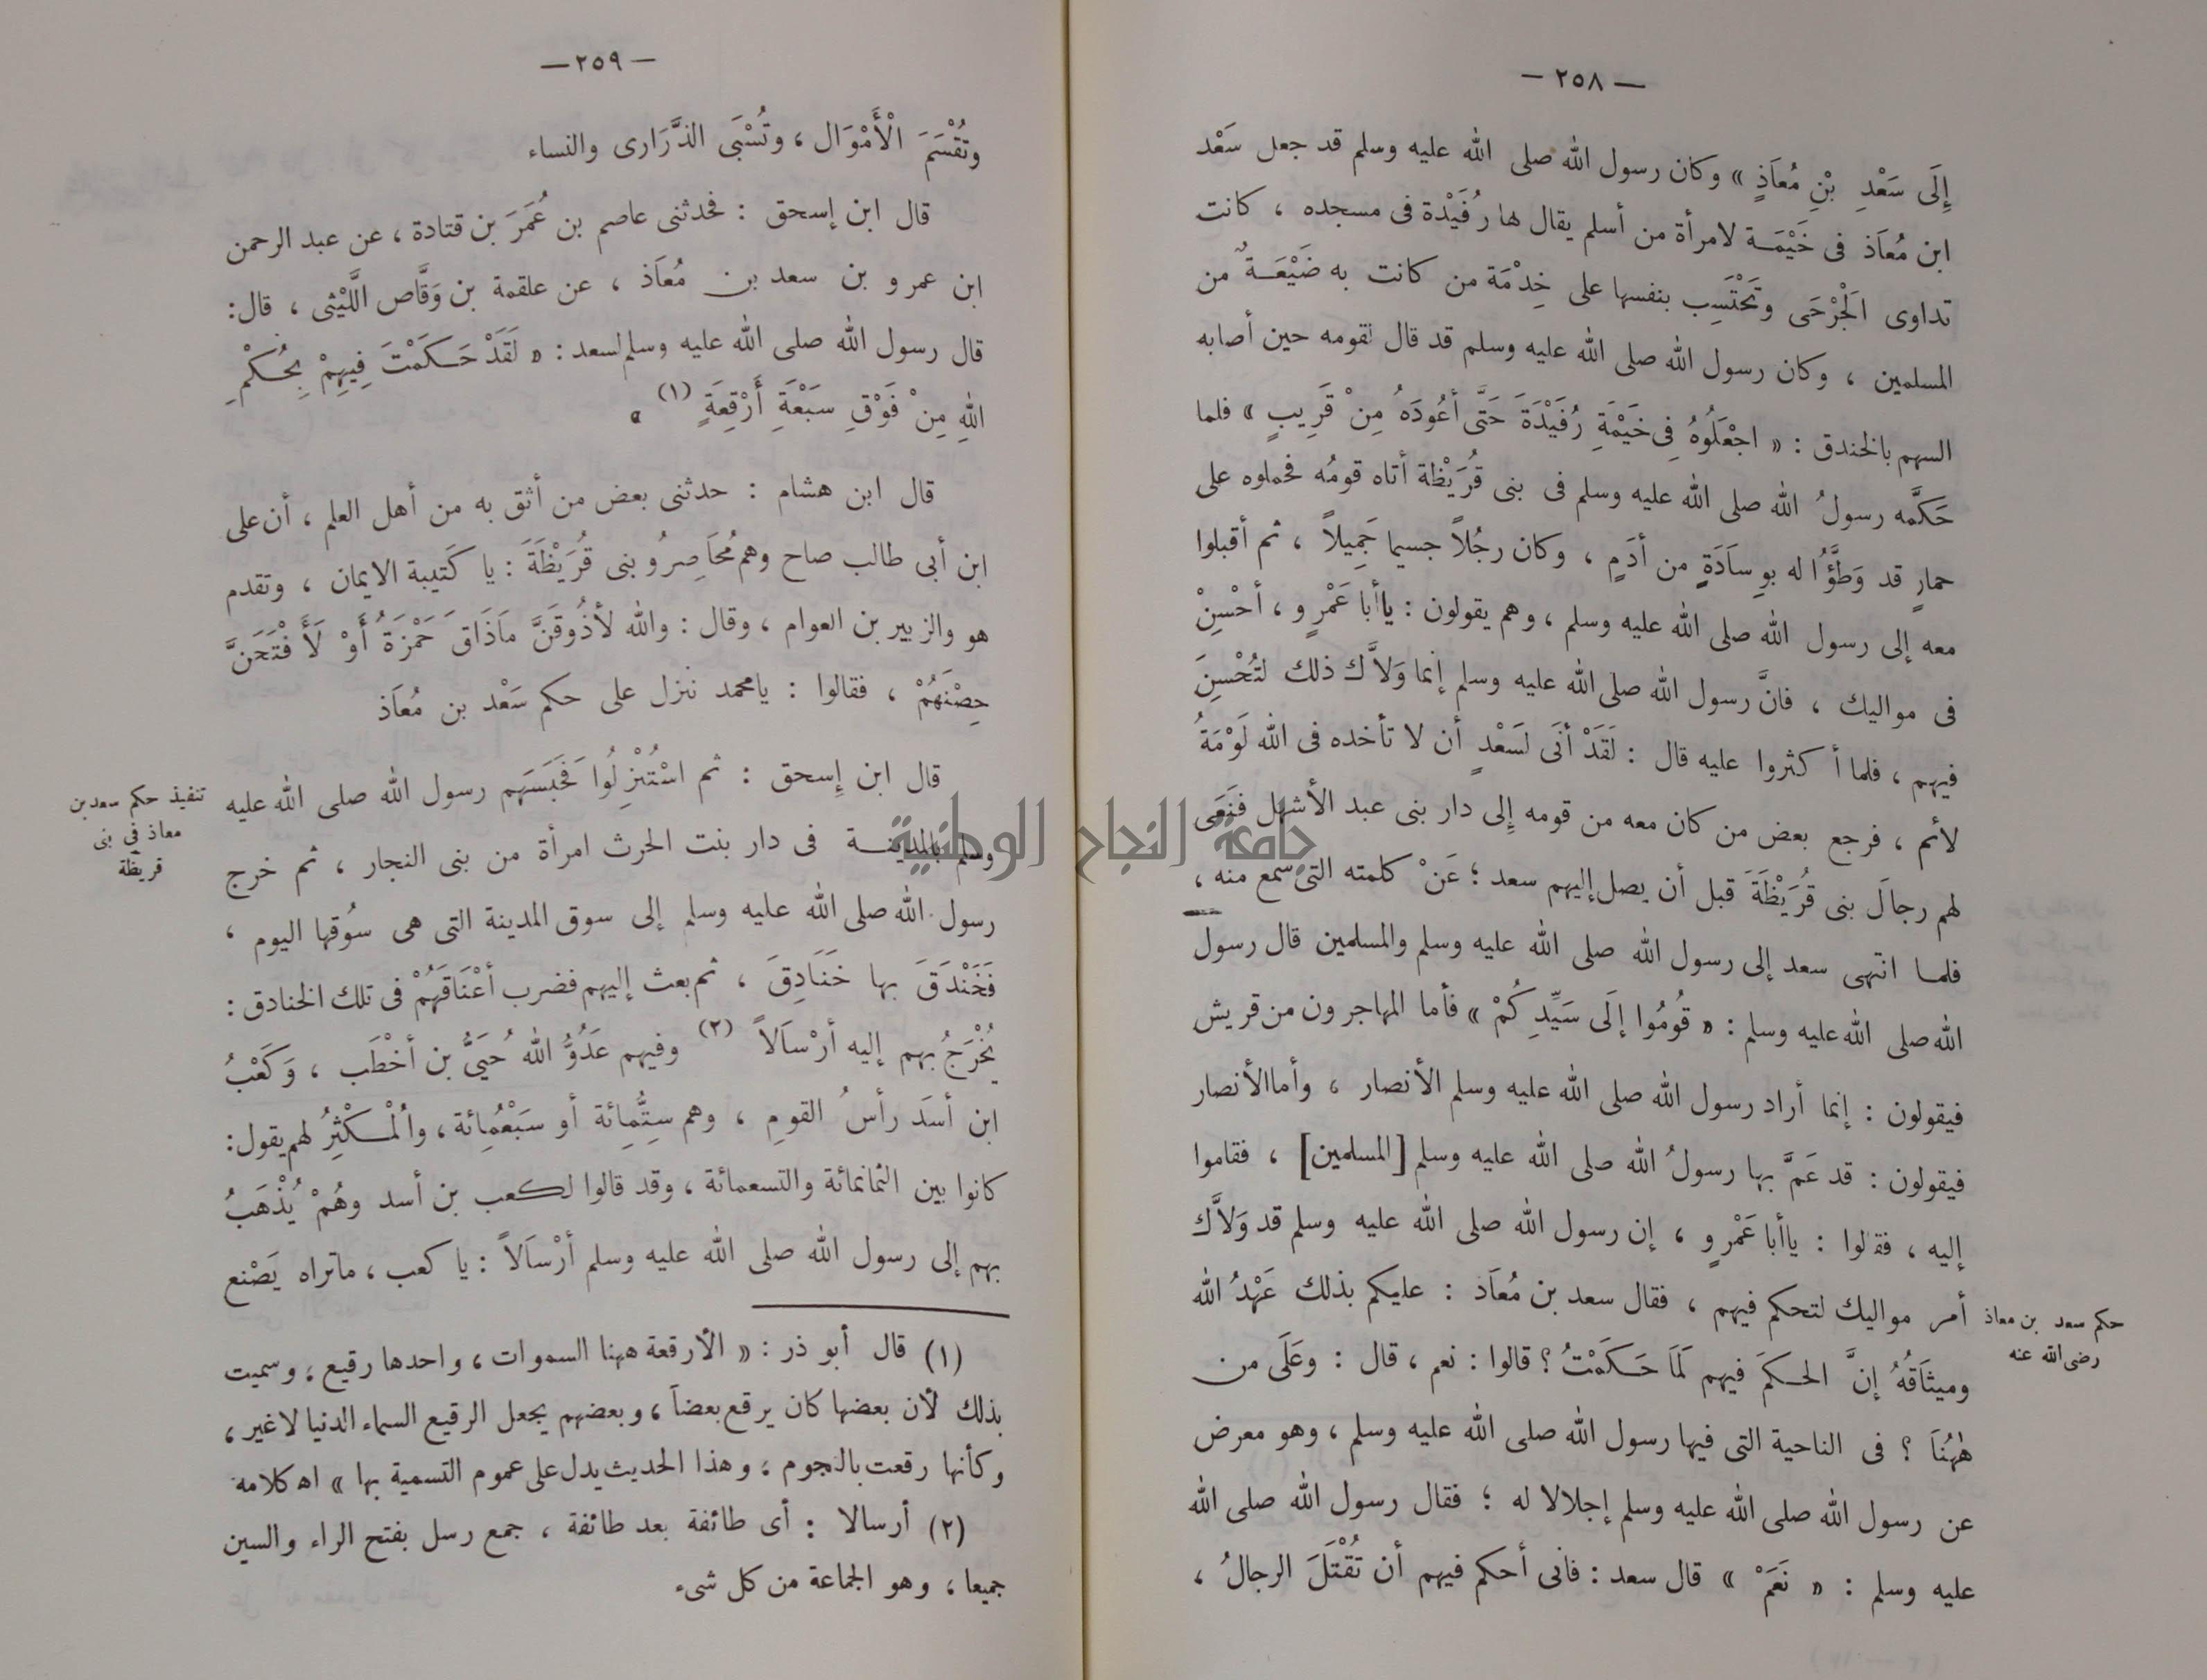 — ٢٥٨ —
إِلَى سَعْدِ بْنِ مُعَاذٍ » وكان رسول الله صلى الله عليه وسلم قد جعل سَعْد
ابن مُعَاذ فى خَيْمَة لامرأة من أسلم يقال لها رُفَيْدة فى مسجده ، كانت
تداوى الْجَرْحَى وتَحْتَسِب بنفسها على خِدْمَة من كانت به ضَيْعَةٌ من
المسلمين ، وكان رسول الله صلى الله عليه وسلم قد قال لقومه حين أصابه
السهم بالخندق : « اجْعَلُوهُ فِى خَيْمَةِ رُفَيْدَةَ حَتَّى أعُودَهُ مِنْ قَرِيبٍ » فلما
حَكَّمه رسولُ الله صلى الله عليه وسلم فى بنى قُرَيْظة أتاه قومُه فحملوه على
حمارٍ قد وَطَّؤُا له بوِسَادَةٍ من أدَمٍ ، وكان رجُلاً جسيما جَمِيلاً ، ثم أقبلوا
معه إلى رسول الله صلى الله عليه وسلم ، وهم يقولون : يأأبا عَمْرٍ و ، أحْسِنْ
فى مواليك ، فانَّ رسول الله صلى الله عليه وسلم إنما وَلاَّك ذلك لتُحْسِنَ
فيهم ، فلما أكثروا عليه قال : لَقَدْ أنَى لسَعْدٍ أن لا تأخده فى الله لَوْمَةُ
لأئم ، فرجع بعض من كان معه من قومه إِلى دار بنى عبد الأشهل فَنَعَى
لهم رجالَ بنى قُرَيْظَةَ قبل أن يصل إليهم سعد ؛ عَنْ كلمته التى سمع منه ،
فلما انتهى سعد إلى رسول الله صلى الله عليه وسلم والمسلمين قال رسول
الله صلى الله عليه وسلم : « قُومُوا إلَى سَيِّدِكُمْ » فأما المهاجرون من قريش
فيقولون : إنما أراد رسول الله صلى الله عليه وسلم الأنصار ، وأما الأنصار
فيقولون : قد عَمَّ بها رسولُ الله صلى الله عليه وسلم [المسلمين] ، فقاموا
إليه ، فقالوا : ياأبا عَمْرٍ و ، إن رسول الله صلى الله عليه وسلم قد وَلاَّك
أمر مواليك لتحكم فيهم ، فقال سعد بن مُعَاذ : عليكم بذلك عَهْدُ الله
حكم سعد بن معاذ
رضى الله عنه
وميثَاقُهُ إنَّ الحكمَ فيهم لَمَا حَكَمْتُ ؟ قالوا : نعم ، قال : وعَلَى من
هٰهُنَا ؟ فى الناحية التى فيها رسول الله صلى الله عليه وسلم ، وهو معرض
عن رسول الله صلى الله عليه وسلم إجلالا له ؛ فقال رسول الله صلى الله
عليه وسلم : « نَعَمْ » قال سعد : فانى أحكم فيهم أن تُقْتَلَ الرجالُ ،
— ٢٥٩ —
وتُقْسَمَ الْأَمْوَال ، وتُسْبَى الذَّرَارى والنساء
قال ابن إسحق : فحدثنى عاصم بن عُمَرَ بن قتادة ، عن عبد الرحمن
ابن عمرو بن سعد بن مُعَاذ ، عن علقمة بن وَقَّاص اللَّيْثى ، قال :
قال رسول الله صلى الله عليه وسلم لسعد : « لَقَدْ حَكَمْتَ فِيهِمْ بِحُكْمِ
اللهِ مِنْ فَوْقِ سَبْعَةِ أَرْقِعَةٍ (١) »
قال ابن هشام : حدثنى بعض من أثق به من أهل العلم ، أن على
ابن أبى طالب صاح وهم مُحَاصِرُو بنى قُرَيْظَةَ : يا كَتيبة الايمان ، وتقدم
هو والزبير بن العوام ، وقال : والله لأذُوقَنَّ مَاذَاقَ حَمْزَةُ أَوْ لَأَفْتَحَنَّ
حِصْنَهُمْ ، فقالوا : يامحمد ننزل على حكم سَعْد بن مُعَاذ
قال ابن إِسحق : ثم اسْتُنْزِلُوا فَحَبَسَهم رسول الله صلى الله عليه
تنفيذ حكم سعد بن
معاذ فى بنى
قريظة
وسلم بالمدينة فى دار بنت الحرث امرأة من بنى النجار ، ثم خرج
رسول الله صلى الله عليه وسلم إلى سوق المدينة التى هى سُوقها اليوم ،
فَخَنْدَقَ بها خَنَادِقَ ، ثم بعث إليهم فضرب أعْنَاقَهُمْ فى تلك الخنادق :
يُخْرَجُ بهم إليه أرْسَالاً (٢) وفيهم عَدُوُّ الله حُيَىُّ بن أخْطَب ، وَكَعْبُ
ابن أسَد رأسُ القومِ ، وهم سِتُّمِائة أو سَبْعُمِائة ، والْمُكْثِرُ لهم يقول :
كانوا بين الثمانمائة والتسعمائة ، وقد قالوا لكعب بن أسد وهُمْ يُذْهَبُ
بهم إلى رسول الله صلى الله عليه وسلم أرْسَالاً : يا كعب ، ماتراه يَصْنع
(١) قال أبو ذر : « الأرقعة ههنا السموات ، واحدها رقيع ، وسميت
بذلك لأن بعضها كان يرقع بعضا ، وبعضهم يجعل الرقيع السماء الدنيا لاغير ،
وكأنها رقعت بالنجوم ، وهذا الحديث يدل على عموم التسمية بها » اه كلامه
(٢) أرسالا : أى طائفة بعد طائفة ، جمع رسل بفتح الراء والسين
جميعا ، وهو الجماعة من كل شىء
جامعة النجاح الوطنية